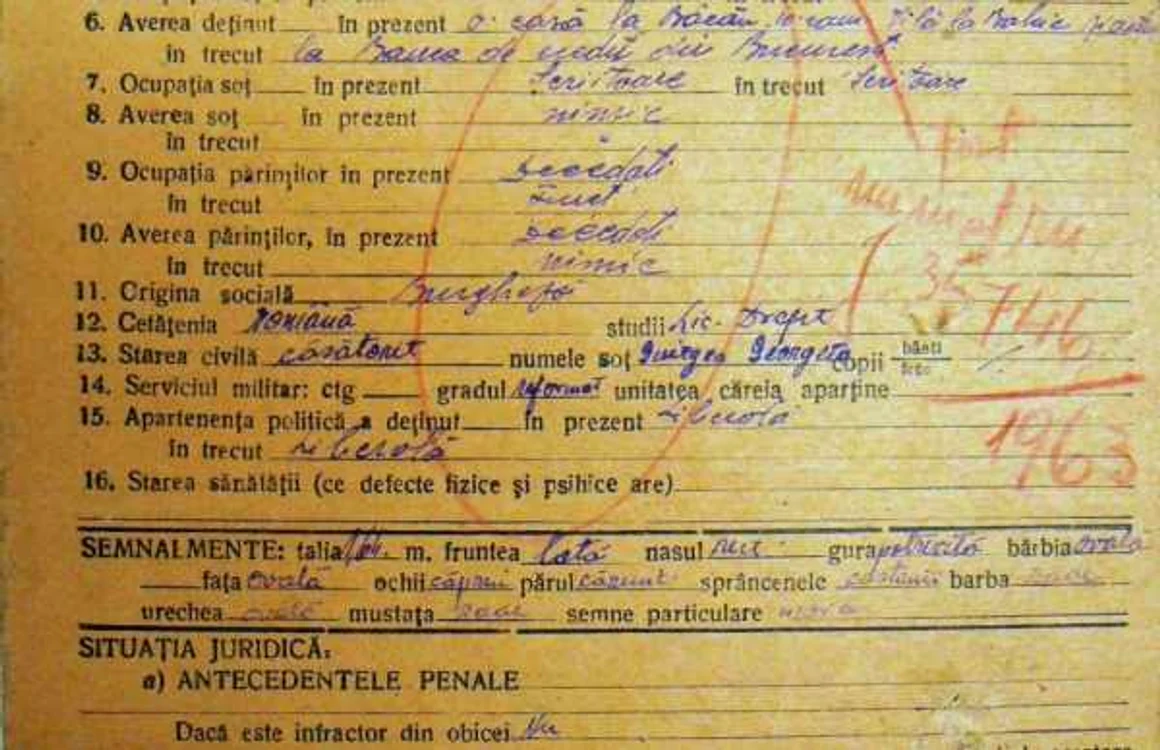 6. Averea deținut în prezent o casă la Bacău
în trecut la Banca de credit din București
7. Ocupația soț în prezent Scriitoare în trecut Scriitoare
8. Averea soț în prezent nimic
în trecut
9. Ocupația părinților în prezent decedați
în trecut
10. Averea părinților, în prezent decedați
în trecut nimic
11. Origina socială Burgheză
12. Cetățenia Română studii Lic. Drept
13. Starea civilă căsătorit numele soț Georgeta copii băeți fete
14. Serviciul militar: ctg gradul reformat unitatea căreia aparține
15. Apartenența politică a deținut în prezent Liberală
în trecut Liberală
16. Starea sănătății (ce defecte fizice și psihice are)
35
1963
SEMNALMENTE: talia m. fruntea lată nasul gura potrivită bărbia ovală
fața ovală ochii căprui părul cărunt sprâncenele castanii barba rade
urechea ovală mustața rade semne particulare
SITUAȚIA JURIDICĂ:
a) ANTECEDENTELE PENALE
Dacă este infractor din obicei Nu